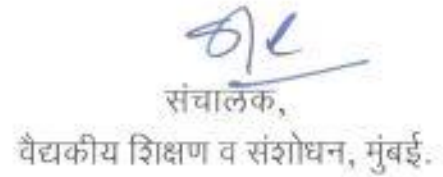 संचालक,
वैद्यकीय शिक्षण व संशोधन, मुंबई.